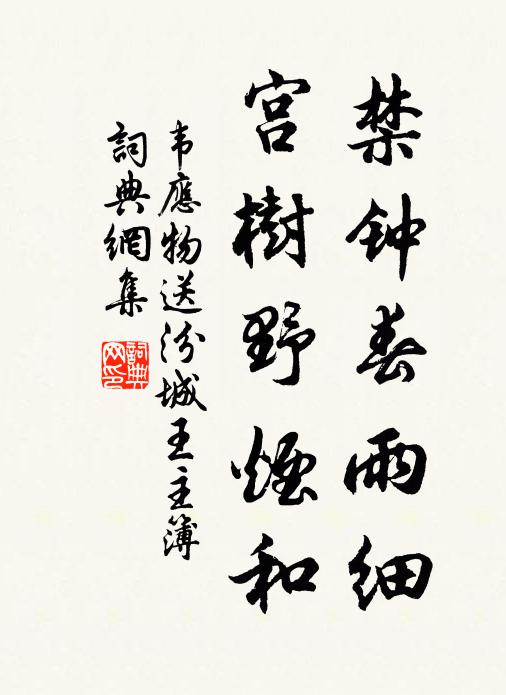 禁钟春雨细
宫樹野煙和
韦應物送汾城王主簿
詞典網集
詞典网印